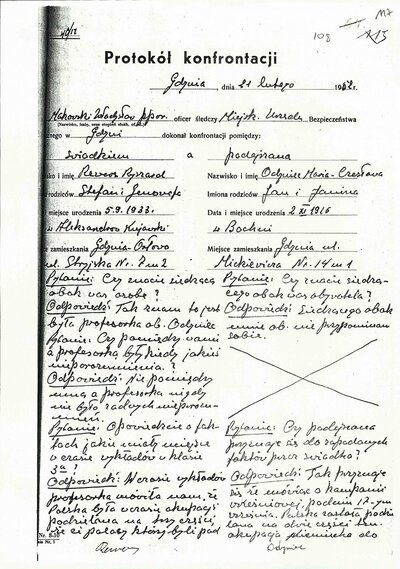 117
108
113
40/12
Protokół konfrontacji
Gdynia, dnia 21 lutego 1952 r.
Makowski Władysław ppor. oficer śledczy Miejsk. Urzędu Bezpieczeństwa
(Nazwisko, imię, oraz stopień służb. of. śl.)
w Gdyni dokonał konfrontacji pomiędzy:
świadkiem a podejrzaną
i imię Rewers Ryszard
rodziców Stefan i Genowefa
miejsce urodzenia 5.9.1933.
w Aleksandrów Kujawski
zamieszkania Gdynia-Orłowo
ul. Stryjska Nr. 7 m 2
Pytanie: Czy znacie siedzącą
obok was osobę?
Odpowiedź: Tak znam to jest
była profesorka ob. Odyniec
Pytanie: Czy pomiędzy wami
a profesorką były kiedy jakieś
nieporozumienia?
Odpowiedź: Nie pomiędzy
mną a profesorką nigdy
nie było żadnych nieporozu-
mień.
Pytanie: Opowiedzcie o fak-
tach jakie miały miejsce
w czasie wykładów w klasie
3a?
Odpowiedź: W czasie wykładów
profesorka mówiła nam, że
Polska była w czasie okupacji
podzielona na trzy części,
że ci polacy którzy byli pod
Nr. 8-10
Nazwisko i imię Odyniec Maria-Czesława
Imiona rodziców Jan i Janina
Data i miejsce urodzenia 2 XI 1916
w Bochni
Miejsce zamieszkania Gdynia ul.
Mickiewicza Nr. 14 m 1
Pytanie: Czy znacie siedzą-
cego obok was obywatela?
Odpowiedź: Siedzącego obok
mnie ob. nie przypominam
sobie.
Pytanie: Czy podejrzana
przyznaje się do zapodanych
faktów przez świadka?
Odpowiedź: Tak przyznaję
się że mówiąc o kampanii
wrześniowej, podałam 17-ym
września. Polska została podzie-
lona na dwie części tzn.
okupacja niemiecka do
Rewers
Odyniec